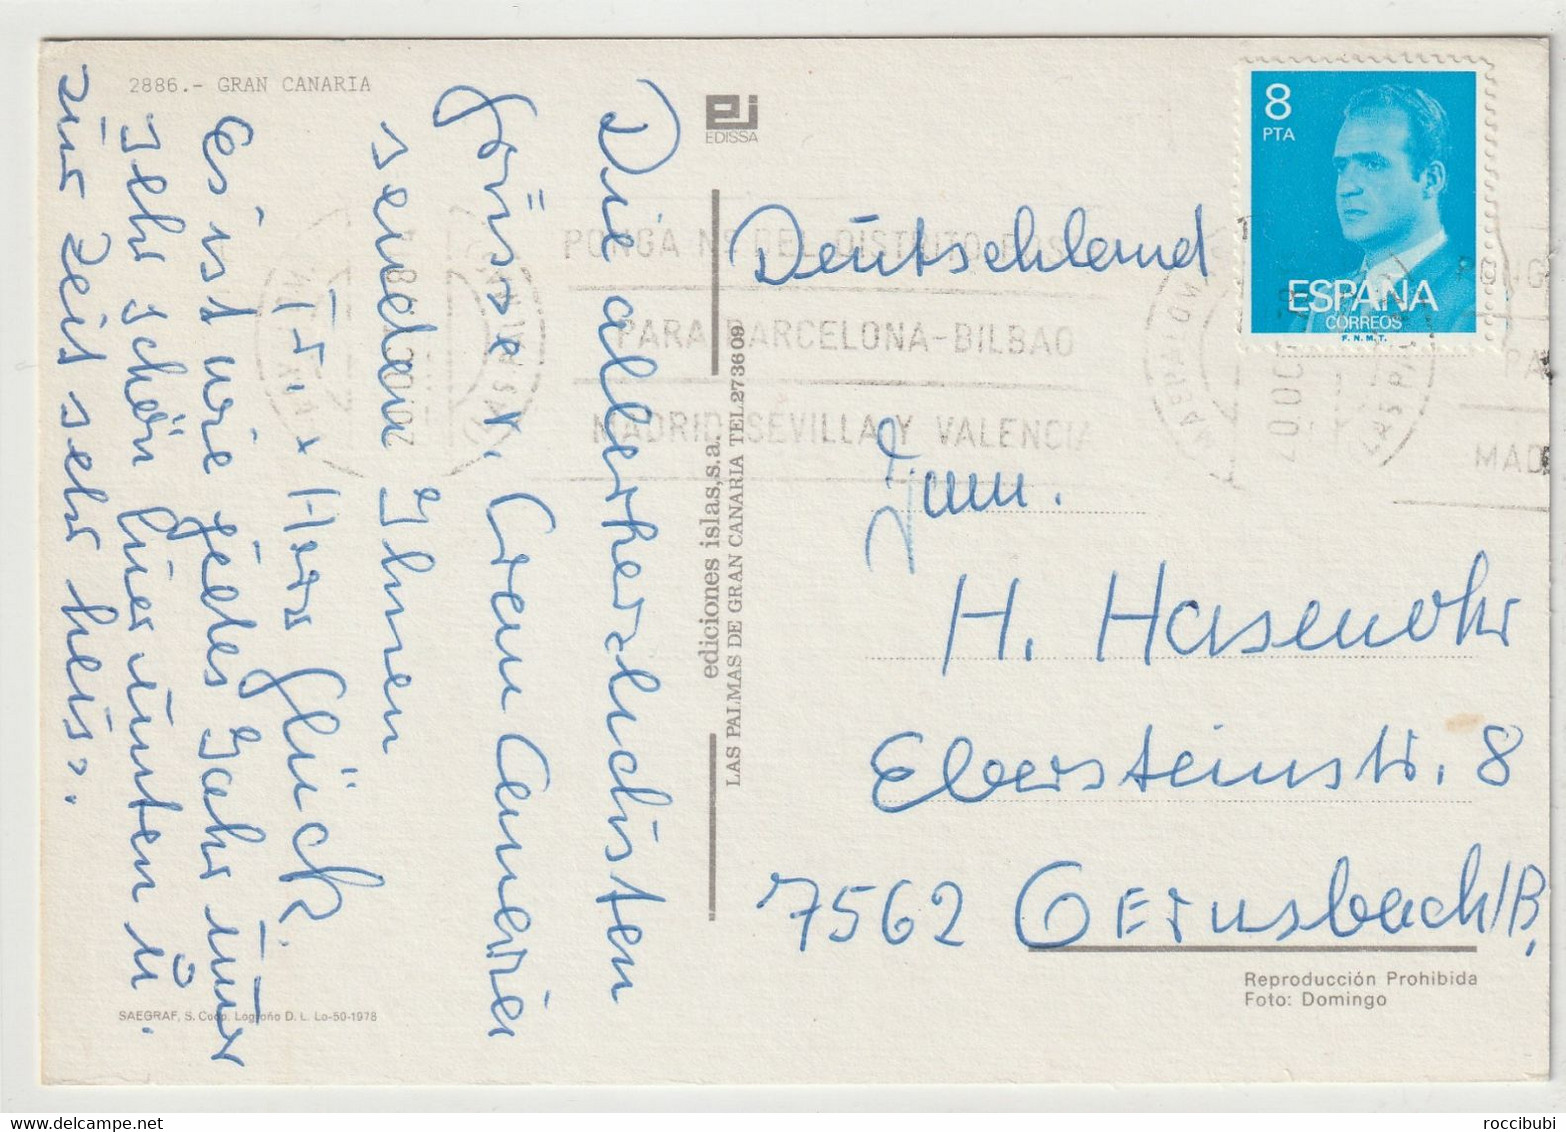 2886.- GRAN CANARIA
EDISSA
Die allerherzlichsten
Grüsse v. Gran Canaria
senden Ihnen
Herr Glück.
Es ist wie jedes Jahr nur
sehr schön hier unten u.
zur Zeit sehr heis.
SAEGRAF, S. Coop. Logroño D. L. Lo-50-1978
ediciones islas,s.a.
LAS PALMAS DE GRAN CANARIA TEL.273609
8
PTA
ESPAÑA
CORREOS
F.N.M.T.
PONGA Nº DEL DISTRITO POS
PARA BARCELONA-BILBAO
MADRID-SEVILLA Y VALENCIA
Deutschland
Fam.
H. Hasenohr
Ebersteinstr. 8
7562 Gernsbach/B.
Reproducción Prohibida
Foto: Domingo